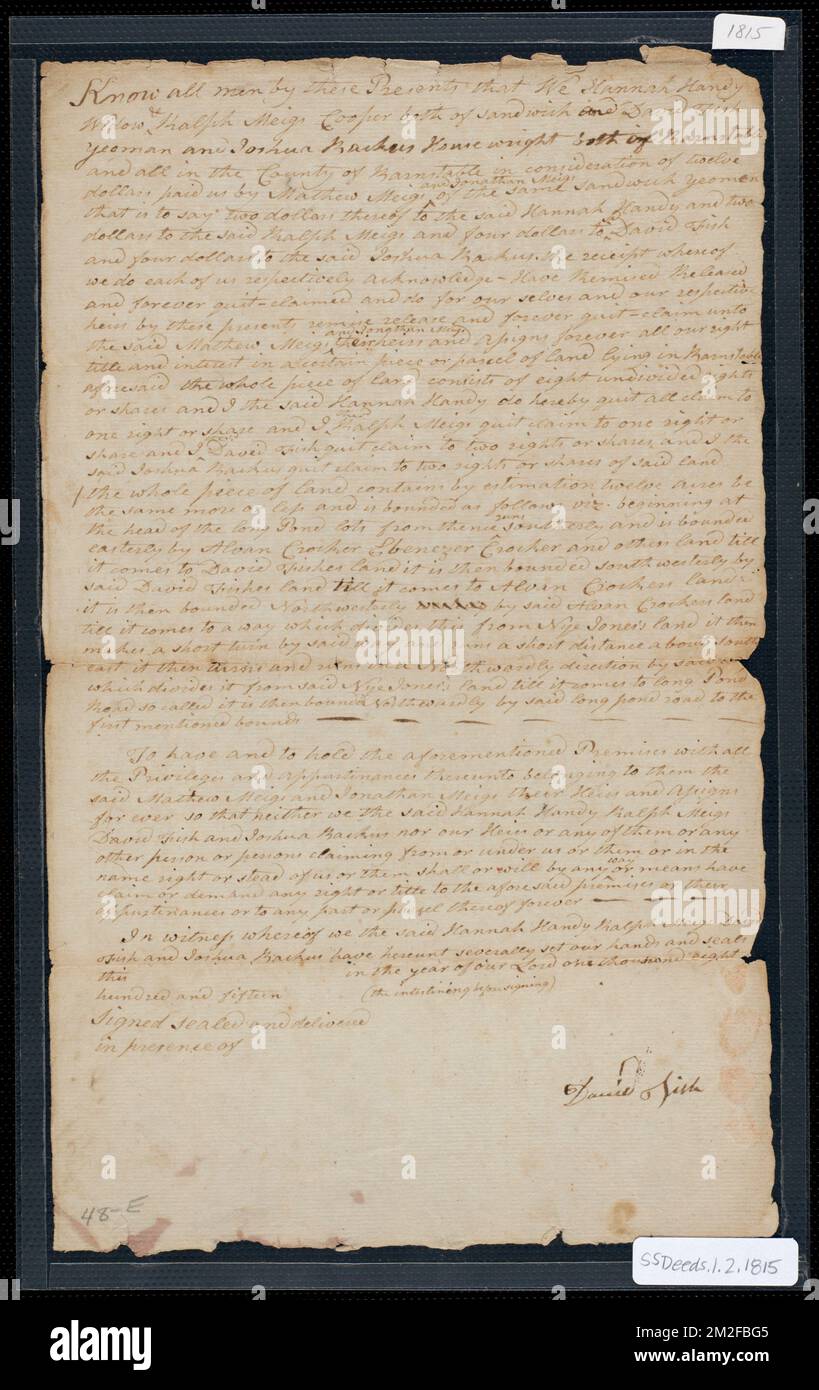 1815
Know all men by these Presents that We Hannah Handy
Widow & Ralph Meigs Cooper both of Sandwich and David Fish
Yeoman and Joshua Backus Housewright both of Barnstable
and all in the County of Barnstable in consideration of twelve
and Jonathan Meigs
dollars paid us by Mathew Meigs ^ of the same Sandwich Yeomen
that is to say two dollars thereof to the said Hannah Handy and two
dollars to the said Ralph Meigs and four dollars to David Fish
and four dollars to the said Joshua Backus, the receipt whereof
we do each of us respectively acknowledge - Have Remised Released
and forever quit-claimed and do for our selves and our respective
heirs by these presents remise release and forever quit-claim unto
and Jonathan Meigs
the said Mathew Meigs ^ their heirs and Assigns forever all our right
title and interest in a certain piece or parcel of land lying in Barnstable
aforesaid the whole piece of land consists of eight undivided rights
or shares and I the said Hannah Handy do hereby quit all claim to
one right or share and I said Ralph Meigs quit claim to one right or
share and I David Fish quit claim to two rights or shares and I the
said Joshua Backus quit claim to two rights or shares of said land
the whole piece of land contains by estimation twelve acres be
the same more or less and is bounded as follows viz. beginning at
the head of the long Pond lots from thence runs southerly and is bounded
easterly by Alvan Crocker Ebenezer Crocker and others land till
it comes to David Fishes land it is then bounded southwesterly by
said David Fishes land till it comes to Alvan Crockers land
it is then bounded Northwesterly by said Alvan Crockers land
till it comes to a way which divides this from Nye Jones's land it then
makes a short turn by said way and runs a short distance about south
east it then turns and runs in a Northwardly direction by said way
which divides it from said Nye Jones's land till it comes to long Pond
Road so called it is then bounded Northwardly by said long pond road to the
first mentioned bounds
To have and to hold the aforementioned Premises with all
the Privileges and Appurtinances thereunto belonging to them the
said Mathew Meigs and Jonathan Meigs their Heirs and Assigns
for ever so that neither we the said Hannah Handy Ralph Meigs
David Fish and Joshua Backus nor our Heirs or any of them or any
other person or persons claiming from or under us or them or in the
name right or stead of us or them shall or will by any way or means have
claim or demand any right or title to the aforesaid premises or their
appurtinances or to any part or parcel thereof forever
In witness whereof we the said Hannah Handy Ralph Meigs David
Fish and Joshua Backus have hereunt severally set our hands and seals
this in the year of our Lord one thousand eight
hundred and fifteen (the interlining before signing)
Signed sealed and delivered
in presence of
David Fish
48-E
SSDeeds.1.2.1815
alamy
Image ID: 2M2FBG5
www.alamy.com